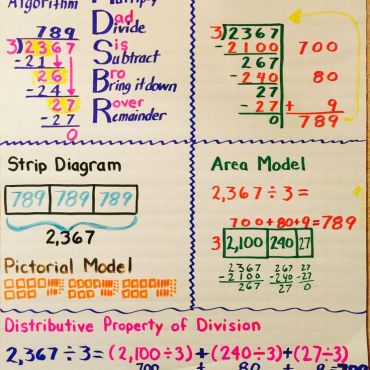 Algorithm
789
3 2367
-21
26
-24
27
-27
0
Multiply
Dad
Divide
Sis
Subtract
Bro
Bring it down
Rover
Remainder
3 2367
-2100 700
267
-240 80
27
-27 + 9
0 789
Strip Diagram
789 789 789
2,367
Pictorial Model
Area Model
2,367÷3=
700+80+9=789
3 2,100 240 27
2367 267 27
-2100 -240 -27
267 27 0
Distributive Property of Division
2,367÷3=(2,100÷3)+(240÷3)+(27÷3)
700 + 80 + 9 =